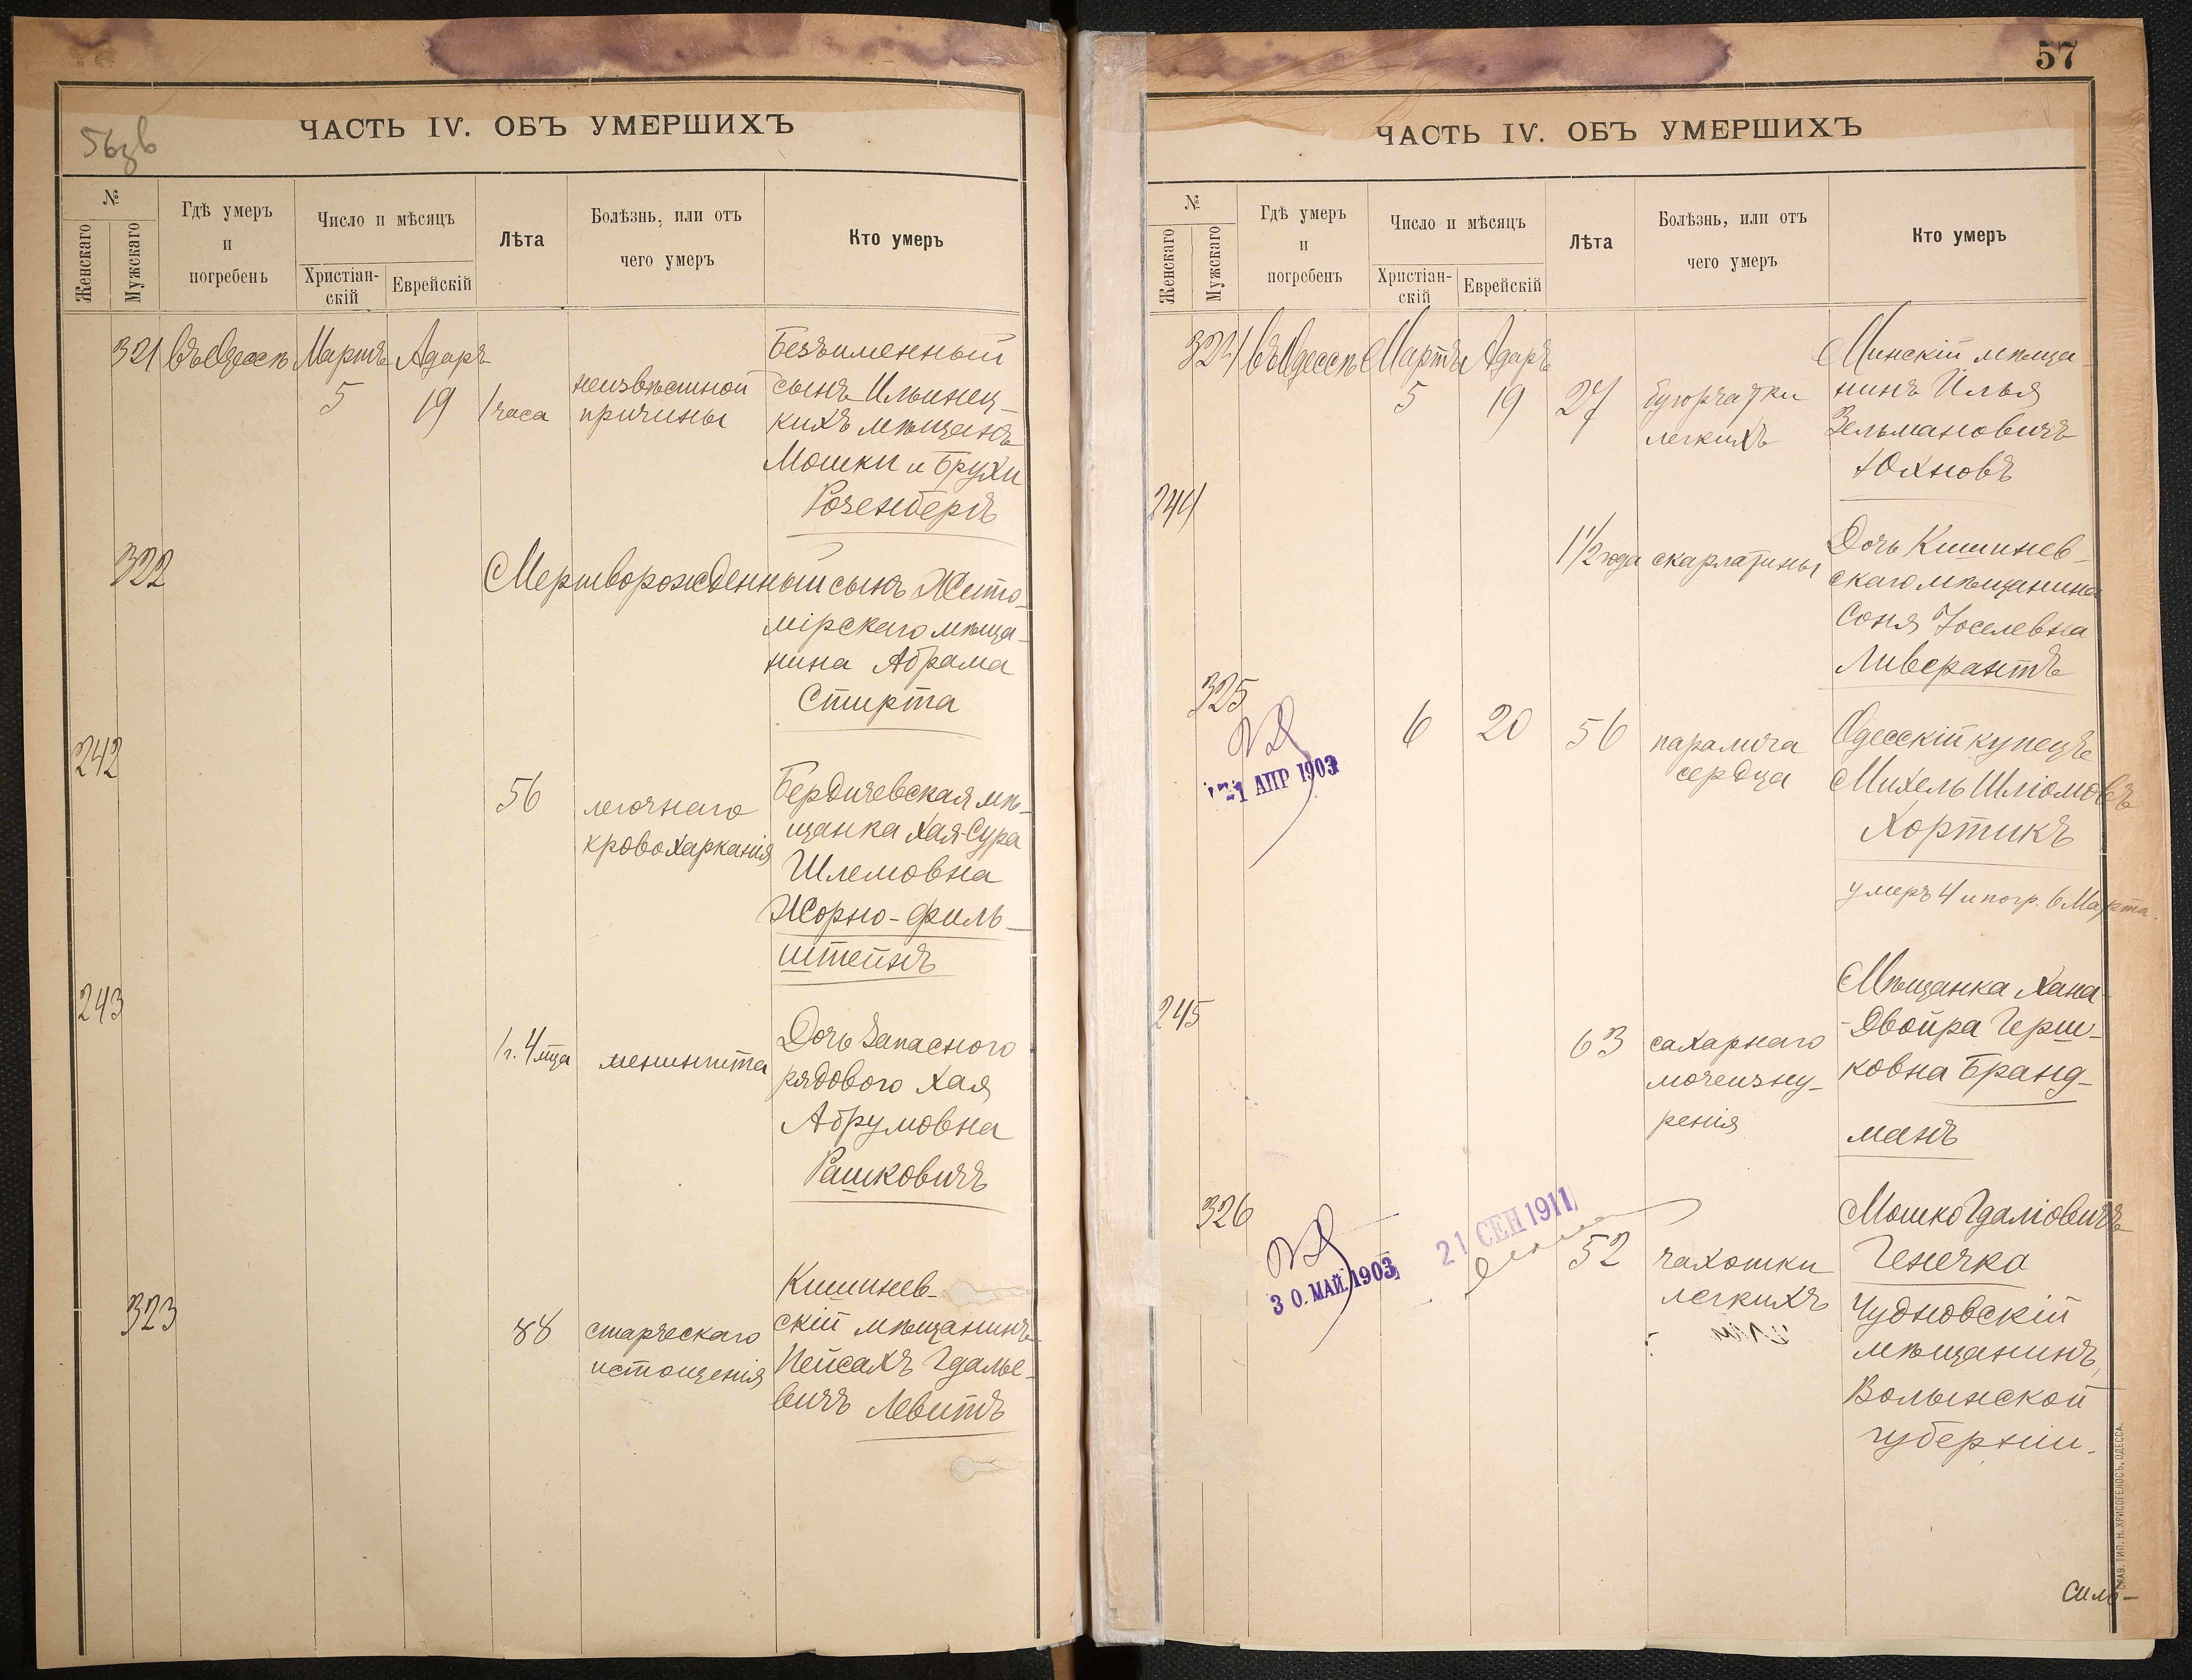 56зв
ЧАСТЬ IV. ОБЪ УМЕРШИХЪ
№
Женскаго
Мужскаго
Гдѣ умеръ
и
погребенъ
Число и мѣсяцъ
Христіан-
скій
Еврейскій
Лѣта
Болѣзнь, или отъ
чего умеръ
Кто умеръ
321 въ Одессѣ Мартъ Адаръ
5 19 1 часа
неизвѣстной
причины
Безъименный
сынъ Ильинец-
кихъ мѣщанъ
Мошки и Брухи
Розенбергъ
322
Мертворожденный сынъ Жито-
мірскаго мѣща-
нина Абрама
Стирта
242
56
легочнаго
кровохарканія
Бердичевская мѣ-
щанка Хая-Сура
Шлемовна
Жорно-филь-
штейнъ
243
1 г. 4 мца
менингита
Дочь Запаснаго
рядового Хая
Абрумовна
Рашковичъ
323
88
старческаго
истощенія
Кишинев-
скій мѣщанинъ
Пейсахъ Гдалье-
вичъ Левитъ
57
ЧАСТЬ IV. ОБЪ УМЕРШИХЪ
№
Женскаго
Мужскаго
Гдѣ умеръ
и
погребенъ
Число и мѣсяцъ
Христіан-
скій
Еврейскій
Лѣта
Болѣзнь, или отъ
чего умеръ
Кто умеръ
324 въ Одессѣ Мартъ Адаръ
5 19 27
бугорчатки
легкихъ
Минскій мѣща-
нинъ Илья
Зельмановичъ
Юхновъ
244
1 1/2 года скарлатины
Дочь Кишинев-
скаго мѣщанина
Соня Іоселевна
Ливерантъ
325
21 АПР 1903
6 20 56
паралича
сердца
Одесскій купецъ
Михель Шліомовъ
Хортикъ
умеръ 4 и погр. 6 Марта.
245
63
сахарнаго
мочеизну-
ренія
Мѣщанка Хана-
-Двойра Герш-
ковна Бранд-
манъ
326
30. МАЙ. 1903
21 СЕН 1911
52
чахотки
легкихъ
Мошко Гдаліовичъ
Генечка
Чудновскій
мѣщанинъ,
Волынской
губерніи.
СЛАВ. ТИП. Н. ХРИСОГЕЛОСЪ, ОДЕССА.